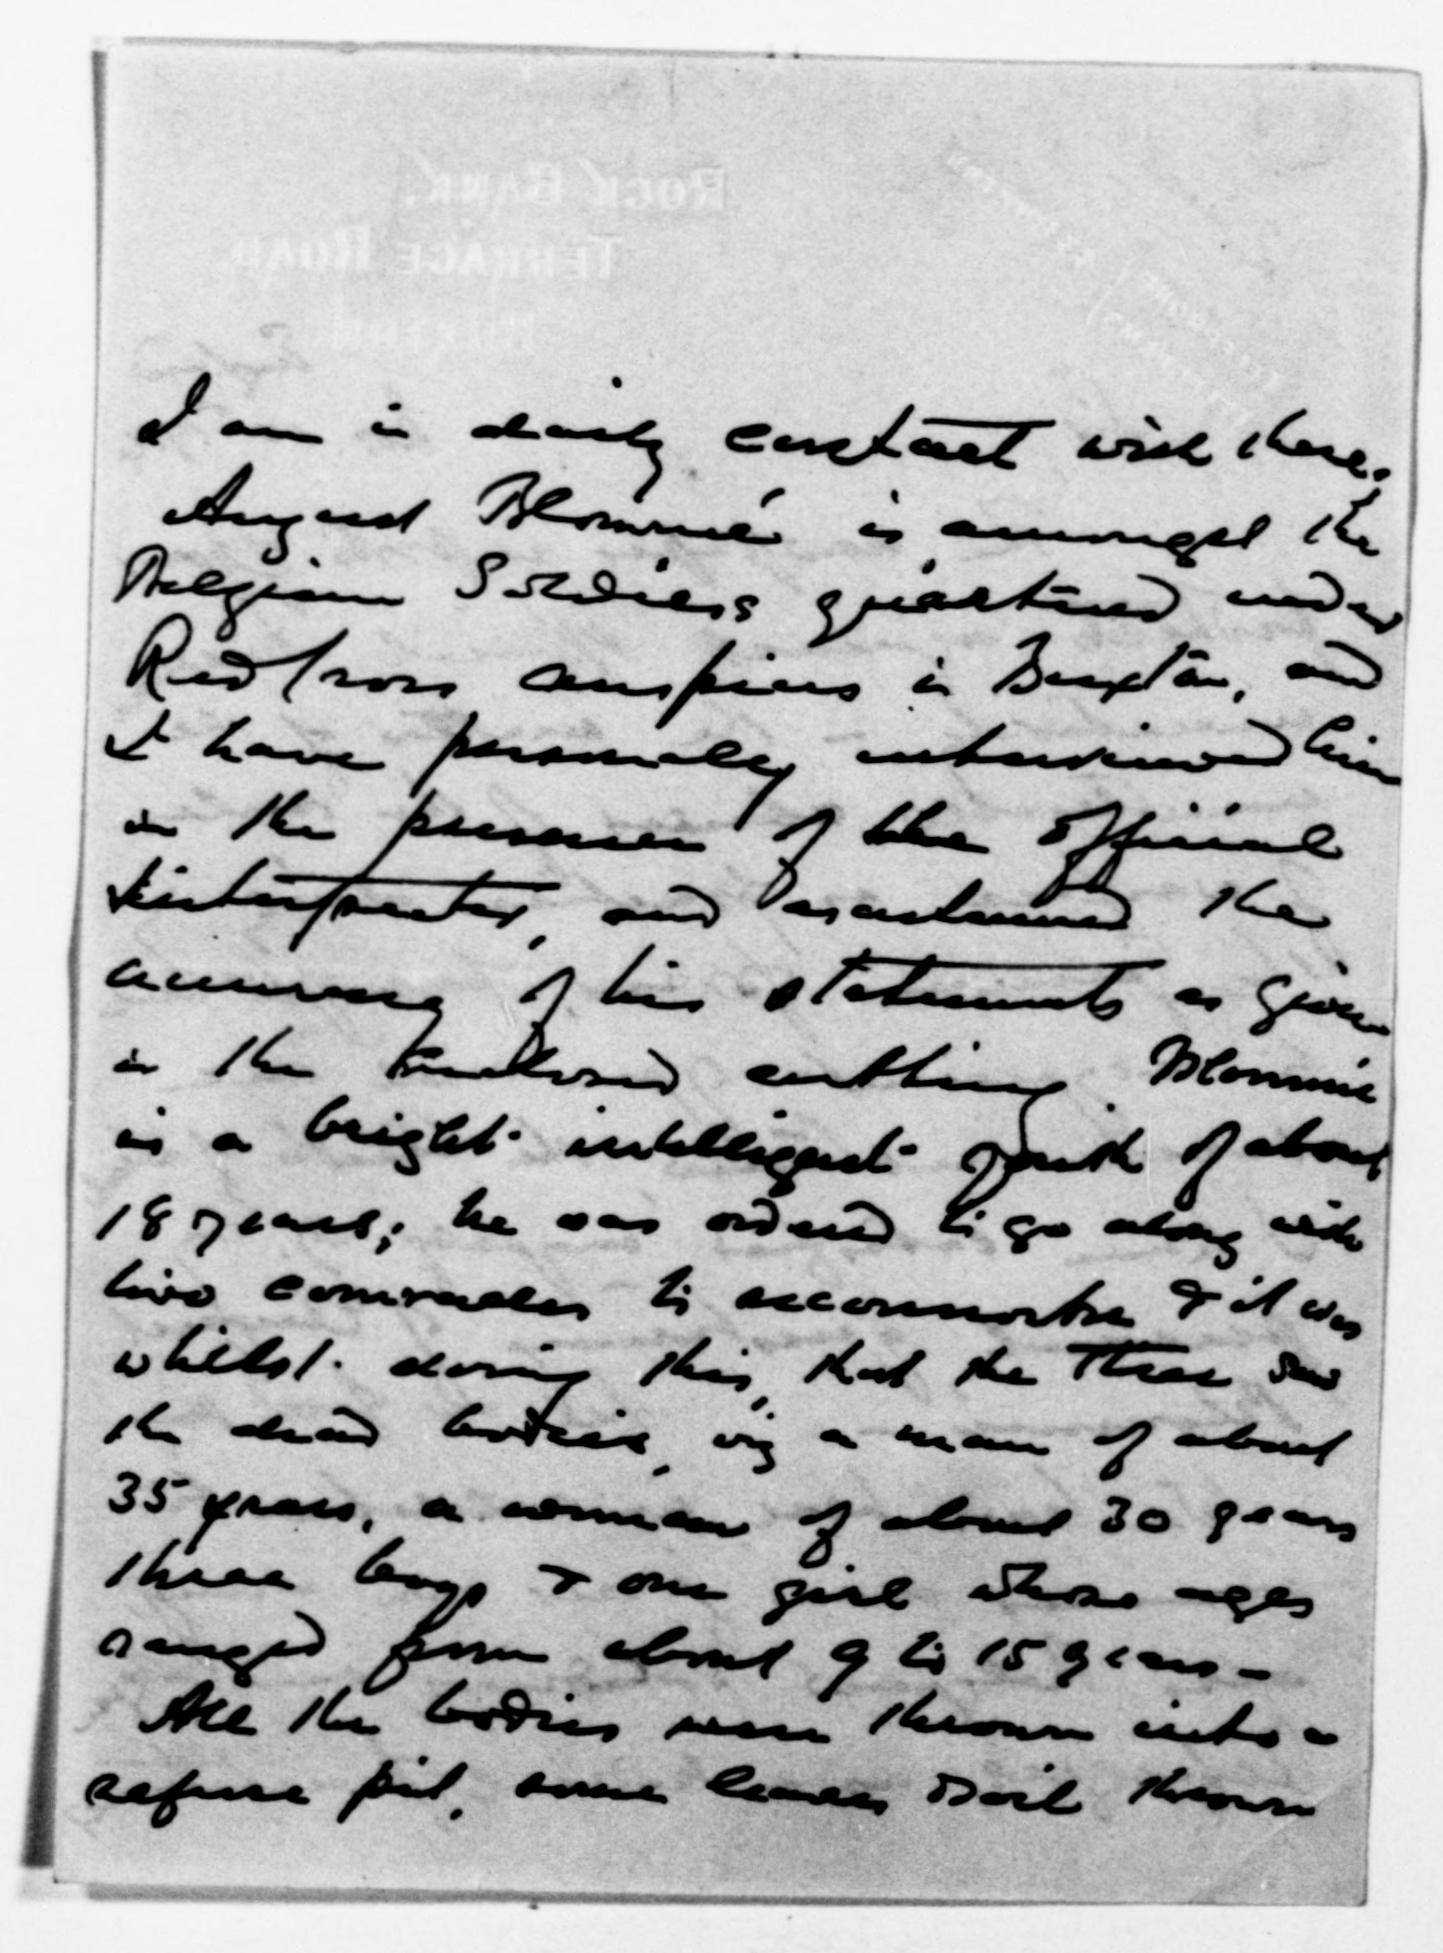 I am in daily contact with these.
August Blommié is amongst the
Belgian Soldiers quartered under
Red Cross auspices in Buxton, and
I have personally interviewed him
in the presence of the official
interpreter, and ascertained the
accuracy of his statements as given
in the enclosed cutting. Blommié
is a bright intelligent youth of about
18 years; he was ordered to go along with
two comrades to reconnoitre & it was
whilst doing this, that the three saw
the dead bodies, viz a man of about
35 years, a woman of about 30 years
three boys & one girl whose ages
ranged from about 9 to 15 years -
All the bodies were thrown into a
refuse pit, some leaves & soil thrown
ROCK BANK.
TERRACE ROAD
BUXTON